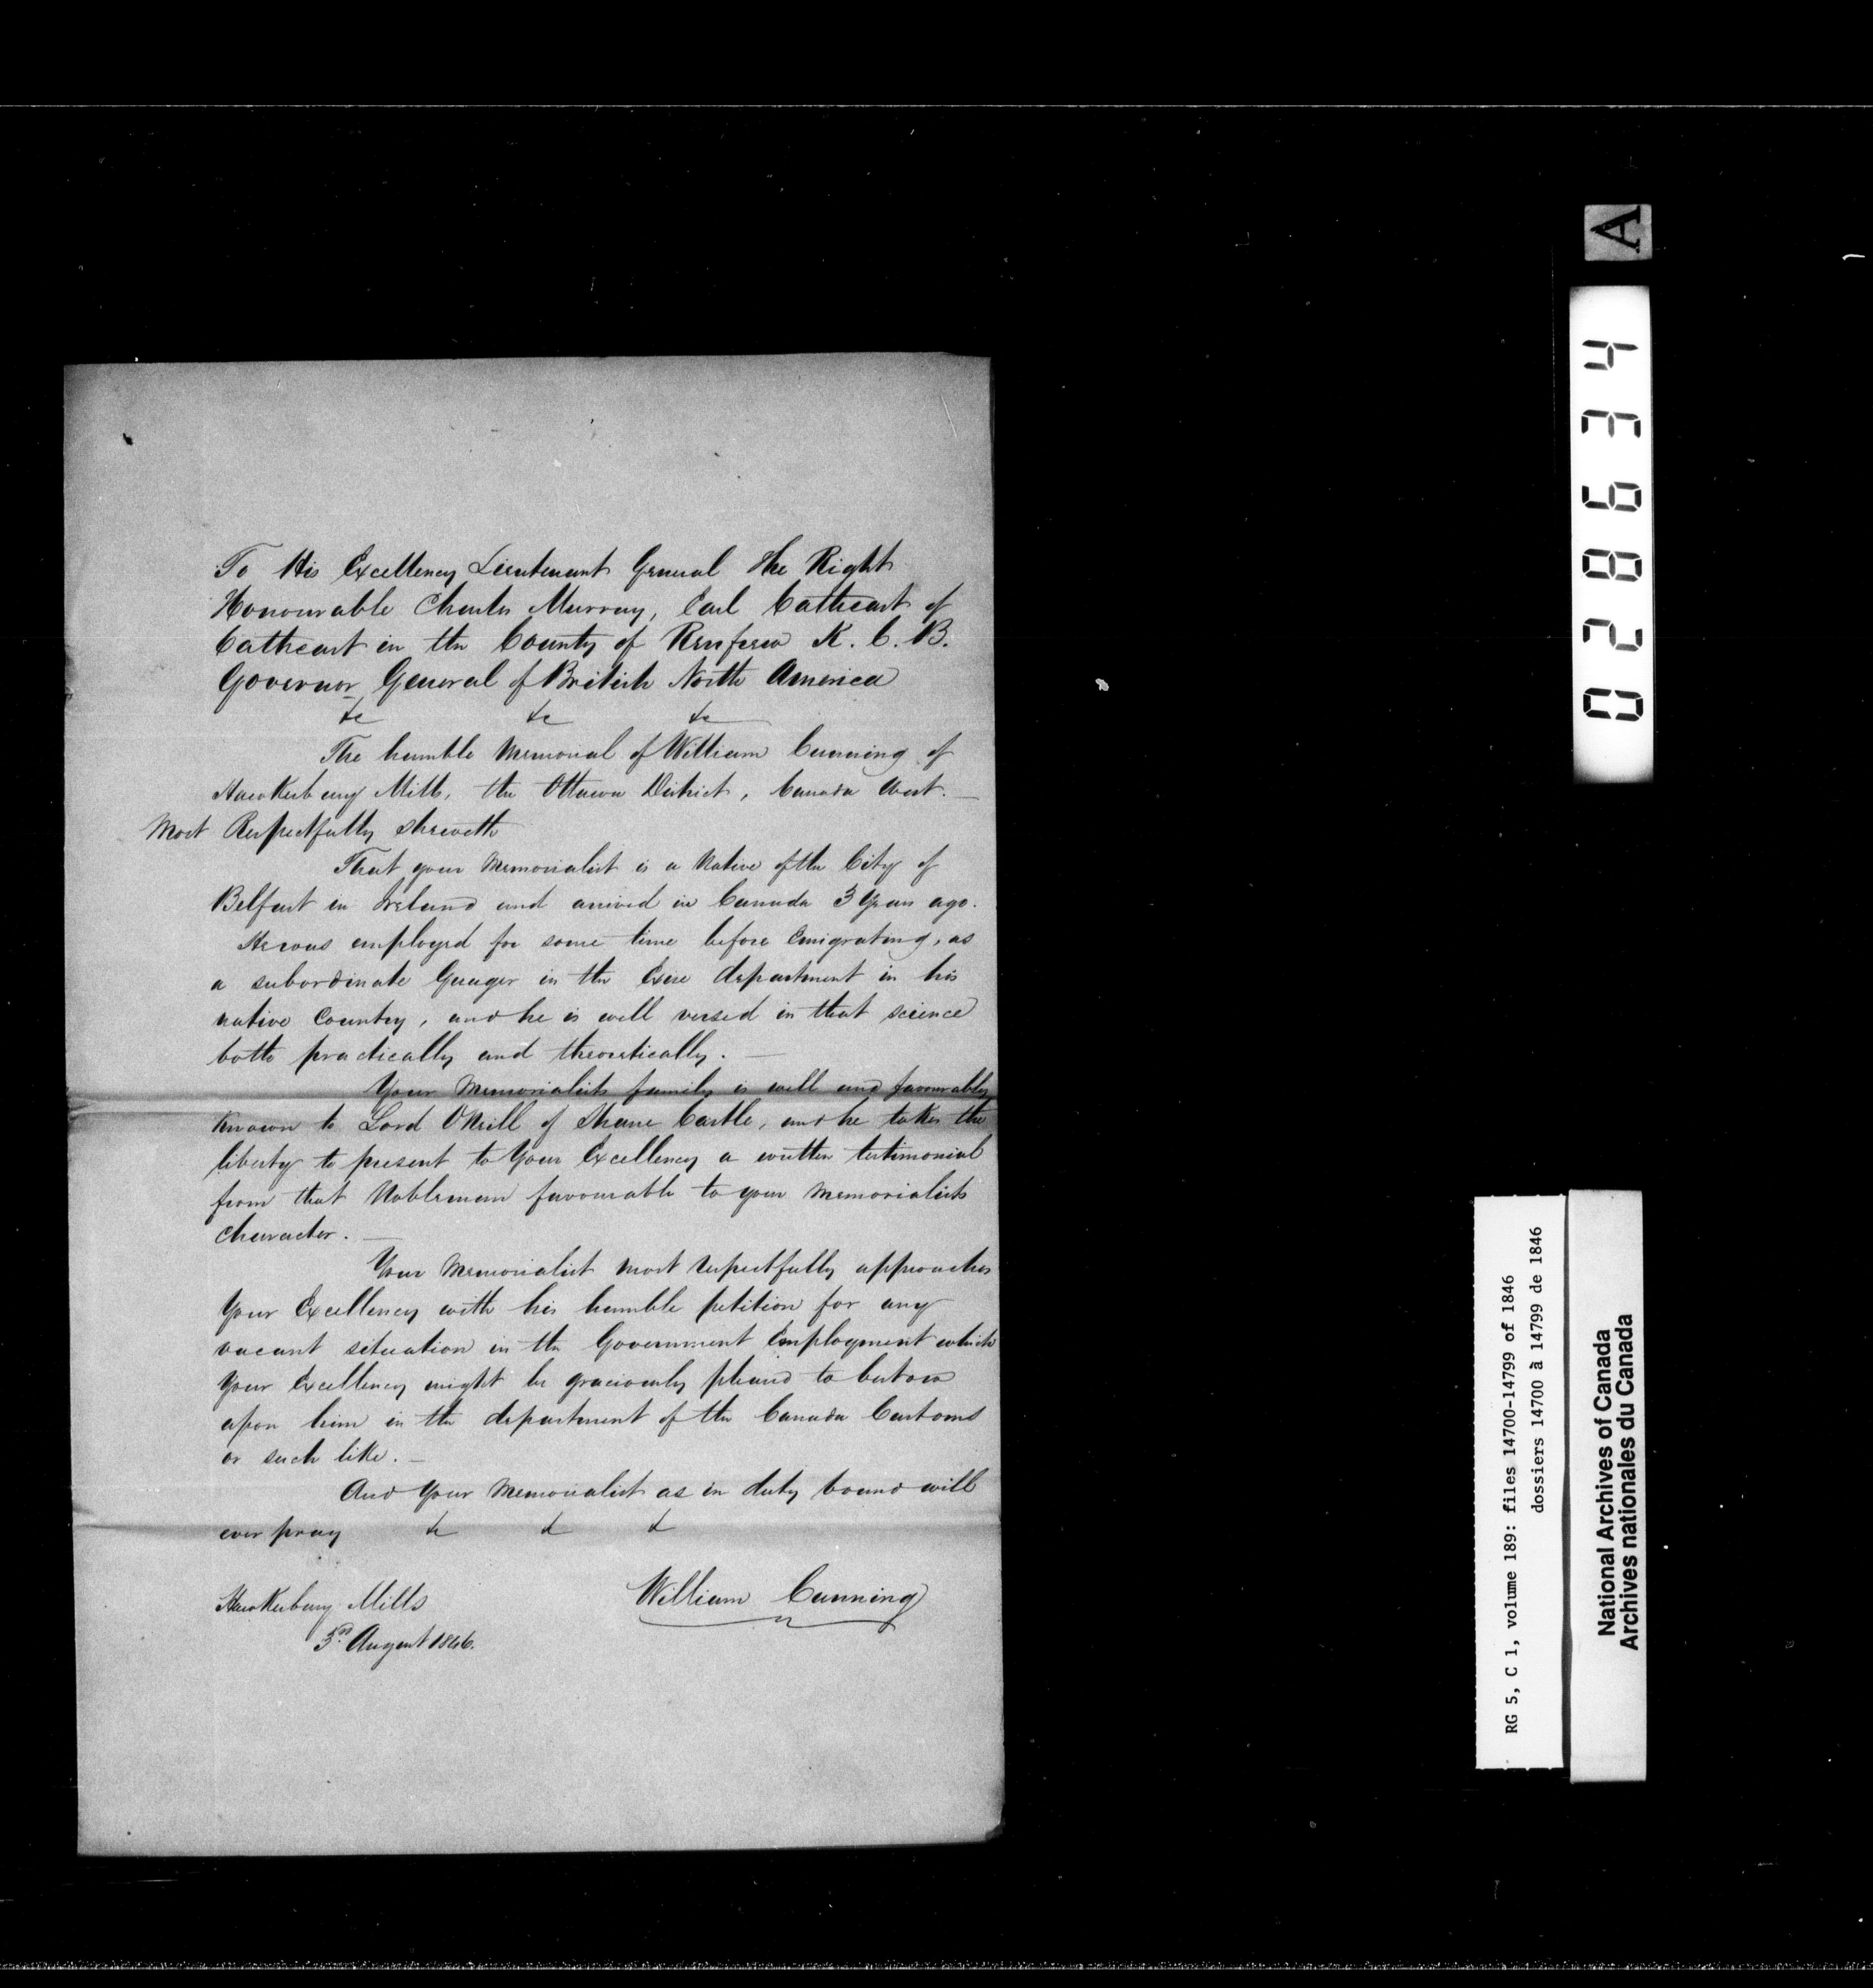 To His Excellency Lieutenant General The Right
Honourable Charles Murray, Earl Cathcart of
Cathcart in the County of Renfrew K. C. B.
Governor General of British North America
&c &c &c
The humble Memorial of William Cunning of
Hawkesbury Mills, the Ottawa District, Canada West. —
Most Respectfully sheweth
That your Memorialist is a Native of the City of
Belfast in Ireland and arrived in Canada 3 Years ago.
He was employed for some time before Emigrating, as
a subordinate Guager in the Excise department in his
native Country, and he is well versed in that science
both practically and theoretically. —
Your Memorialists family is well and favourably
Known to Lord ONeill of Shane Castle, and he takes the
liberty to present to Your Excellency a written testimonial
from that Nobleman favourable to your Memorialists
character. —
Your Memorialist most respectfully approaches
Your Excellency with his humble petition for any
vacant situation in the Government Employment which
Your Excellency might be graciously pleased to bestow
upon him in the department of the Canada Customs
or such like. —
And Your Memorialist as in duty bound will
ever pray &c & &
Hawkesbury Mills
William Cunning
3rd August 1846.
A
028634
RG 5, C 1, volume 189: files 14700-14799 of 1846
dossiers 14700 à 14799 de 1846
National Archives of Canada
Archives nationales du Canada